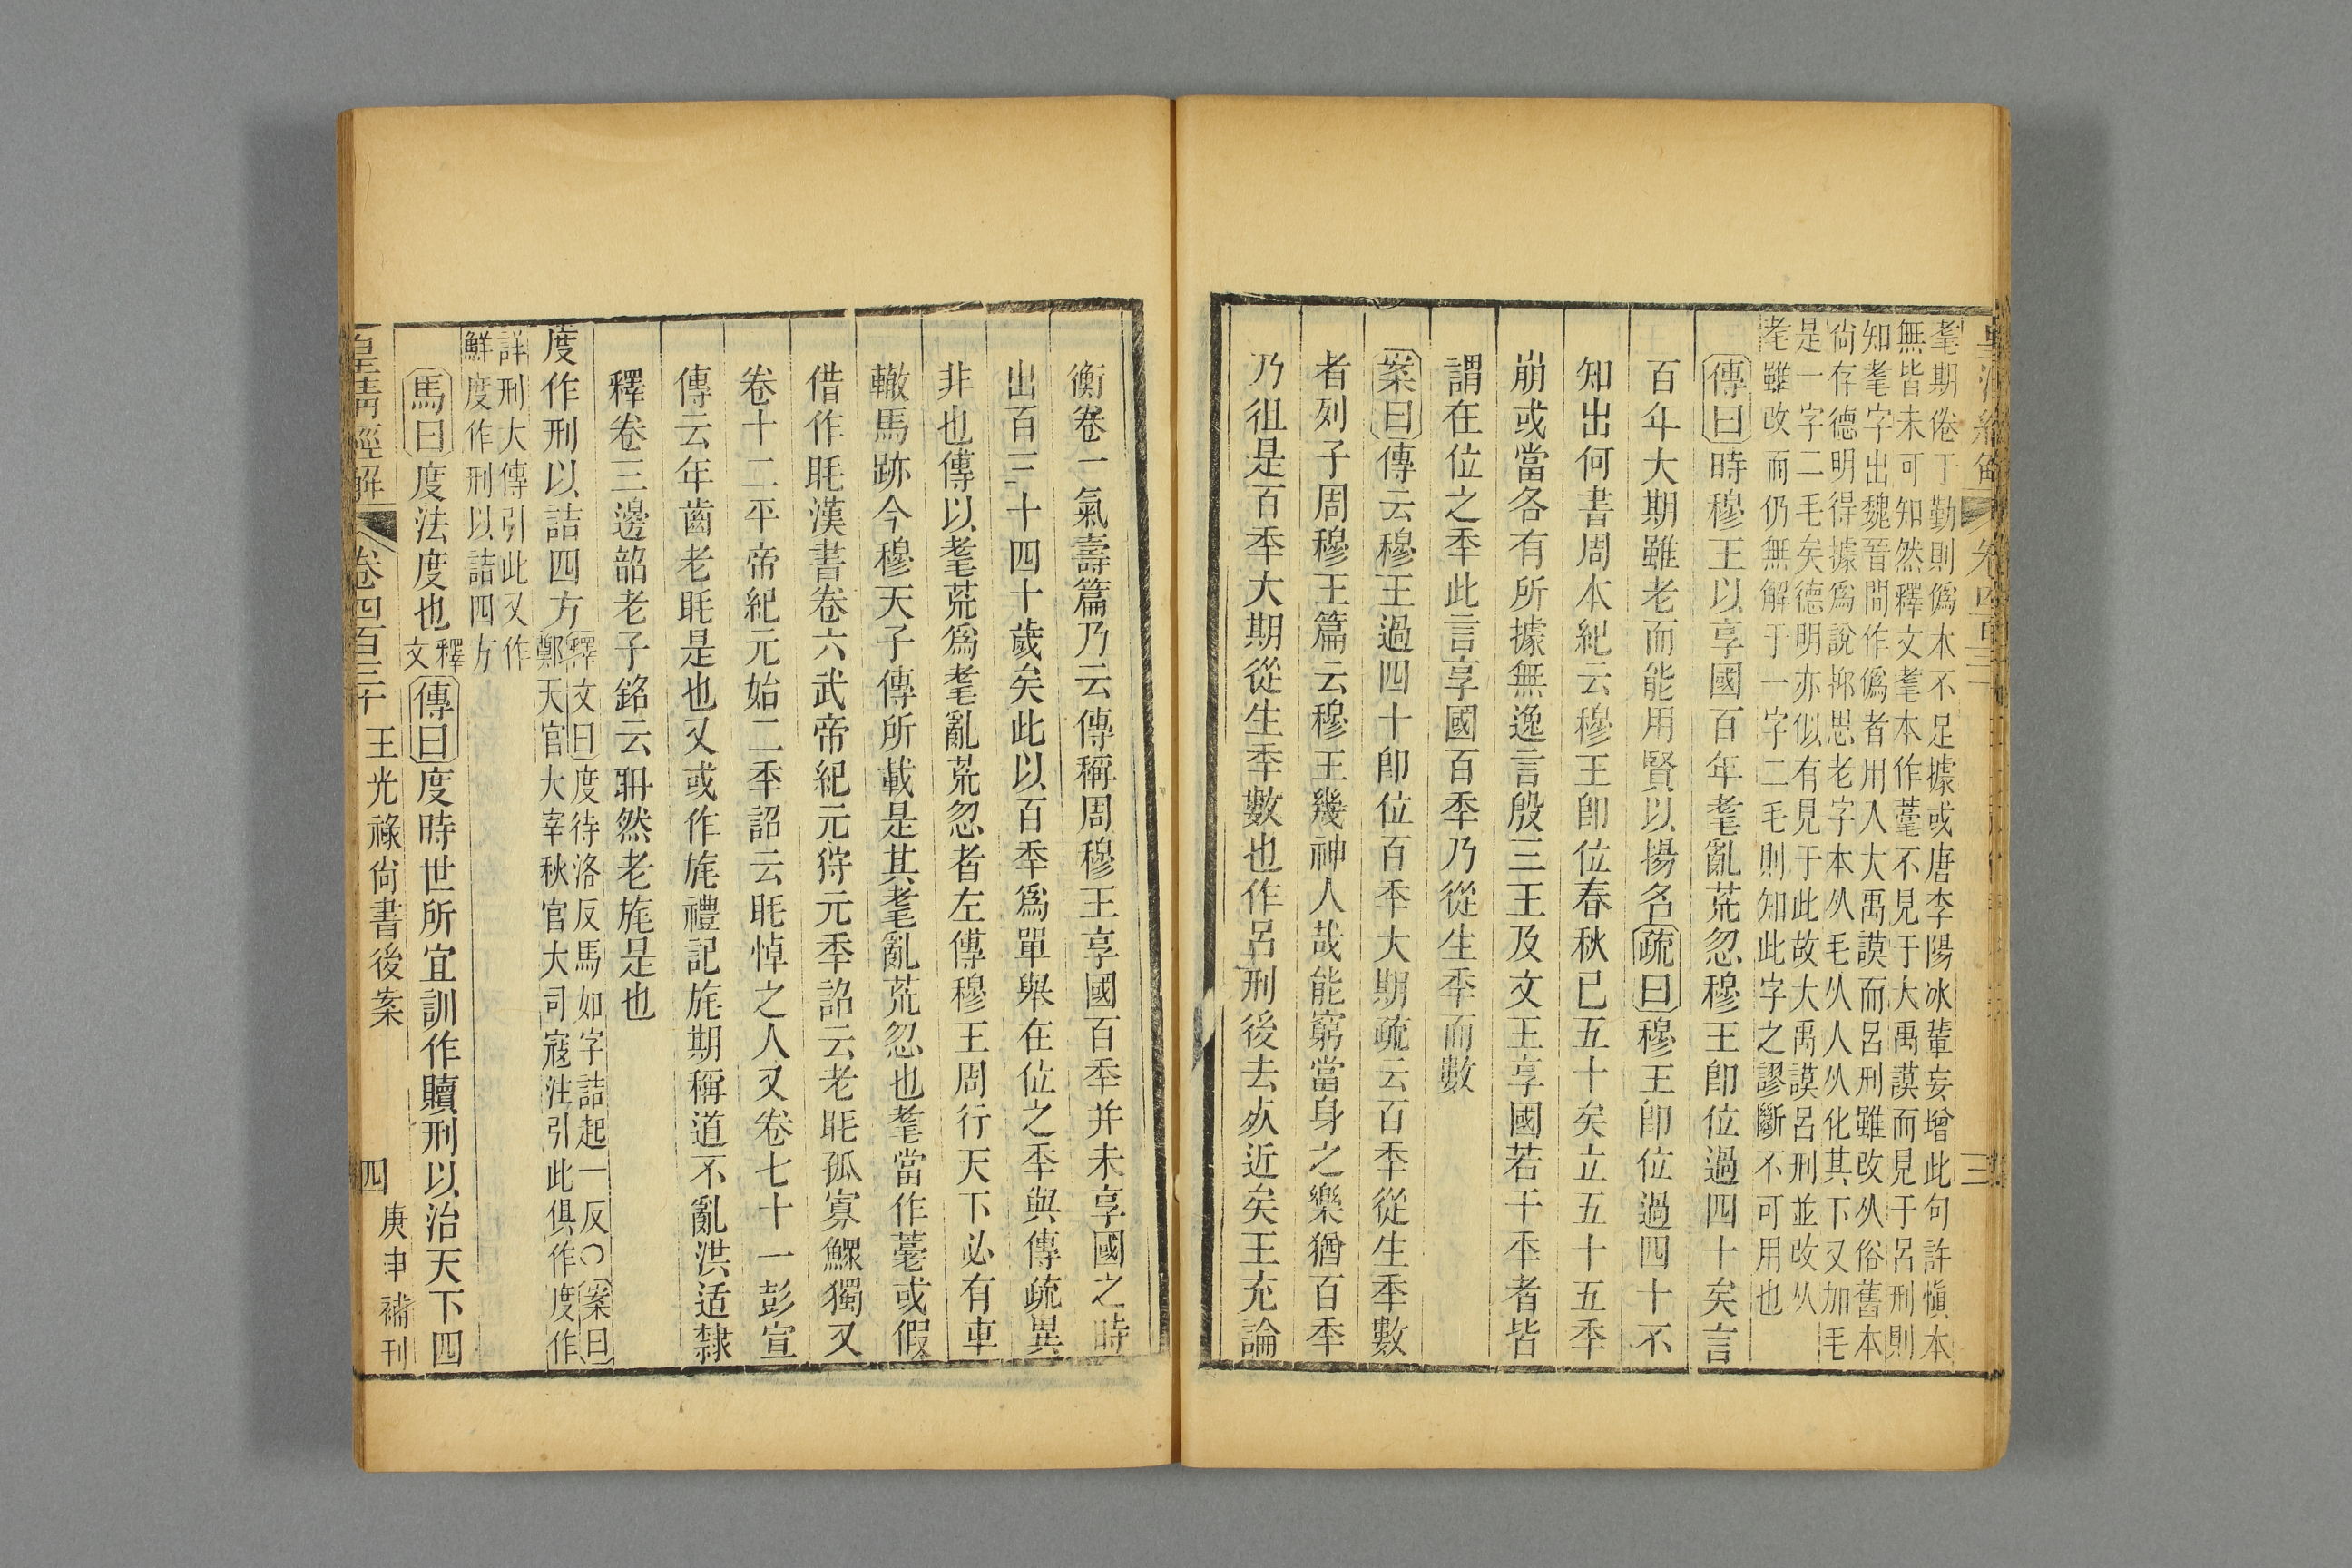 皇清經解 卷四百三十 三
耄期倦于勤則僞本不足據或唐李陽冰輩妄增此句許愼本
無皆未可知然釋文耄本作薹不見于大禹謨而見于呂刑則
知耄字出魏晉間作僞者用入大禹謨而呂刑雖改从俗舊本
尙存德明得據爲說抑思老字本从毛从人从化其下又加毛
是一字二毛矣德明亦似有見于此故大禹謨呂刑並改从
耄雖改而仍無解于一字二毛則知此字之謬斷不可用也
傳曰時穆王以享國百年耄亂荒忽穆王卽位過四十矣言
百年大期雖老而能用賢以揚名疏曰穆王卽位過四十不
知出何書周本紀云穆王卽位春秋已五十矣立五十五秊
崩或當各有所據無逸言殷三王及文王享國若干秊者皆
謂在位之秊此言享國百秊乃從生秊而數
案曰傳云穆王過四十卽位百秊大期疏云百秊從生秊數
者列子周穆王篇云穆王幾神人哉能窮當身之樂猶百秊
乃徂是百秊大期從生秊數也作呂刑後去㱙近矣王充論
衡卷一氣壽篇乃云傳稱周穆王享國百秊并未享國之時
出百三十四十歲矣此以百秊爲單舉在位之秊與傳疏異
非也傳以耄荒爲耄亂荒忽者左傳穆王周行天下必有車
轍馬跡今穆天子傳所載是其耄亂荒忽也耄當作薹或假
借作眊漢書卷六武帝紀元狩元秊詔云老眊孤寡鰥獨又
卷十二平帝紀元始二秊詔云眊悼之人又卷七十一彭宣
傳云年齒老眊是也又或作旄禮記旄期稱道不亂洪适隸
釋卷三邊韶老子銘云聃然老旄是也
度作刑以詰四方釋文曰度待洛反馬如字詰起一反○案曰
鄭天官大宰秋官大司寇注引此俱作度作
詳刑大傳引此又作
鮮度作刑以詰四方
馬曰度法度也釋文傳曰度時世所宜訓作贖刑以治天下四
皇淸經解 卷四百三十 王光祿尙書後案 四 庚申補刊